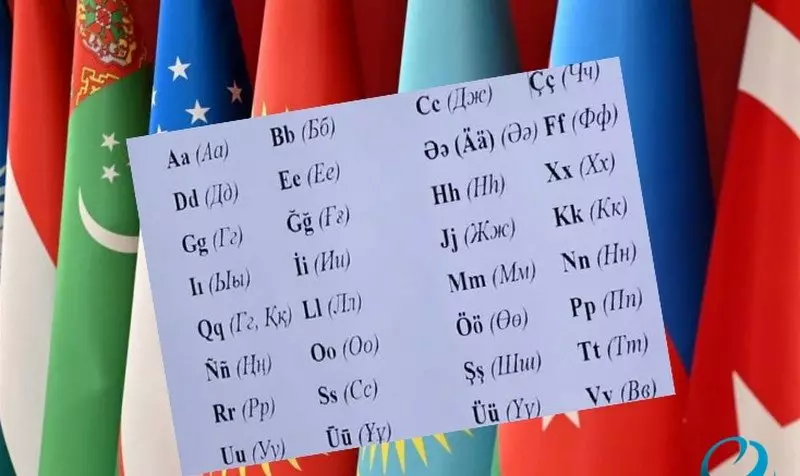 Aa (Аа) Bb (Бб) Cc (Дж) Çç (Чч)
Dd (Дд) Ee (Ее) Əə (Ää) (Әә) Ff (Фф)
Gg (Гг) Ğğ (Ғғ) Hh (Һһ) Xx (Хх)
Iı (Ыы) İi (Ии) Jj (Жж) Kk (Кк)
Qq (Гг, Ққ) Ll (Лл) Mm (Мм) Nn (Нн)
Ññ (Ңң) Oo (Оо) Öö (Өө) Pp (Пп)
Rr (Рр) Ss (Сс) Şş (Шш) Tt (Тт)
Uu (Уу) Ūū (Үү) Üü (Үү) Vv (Вв)